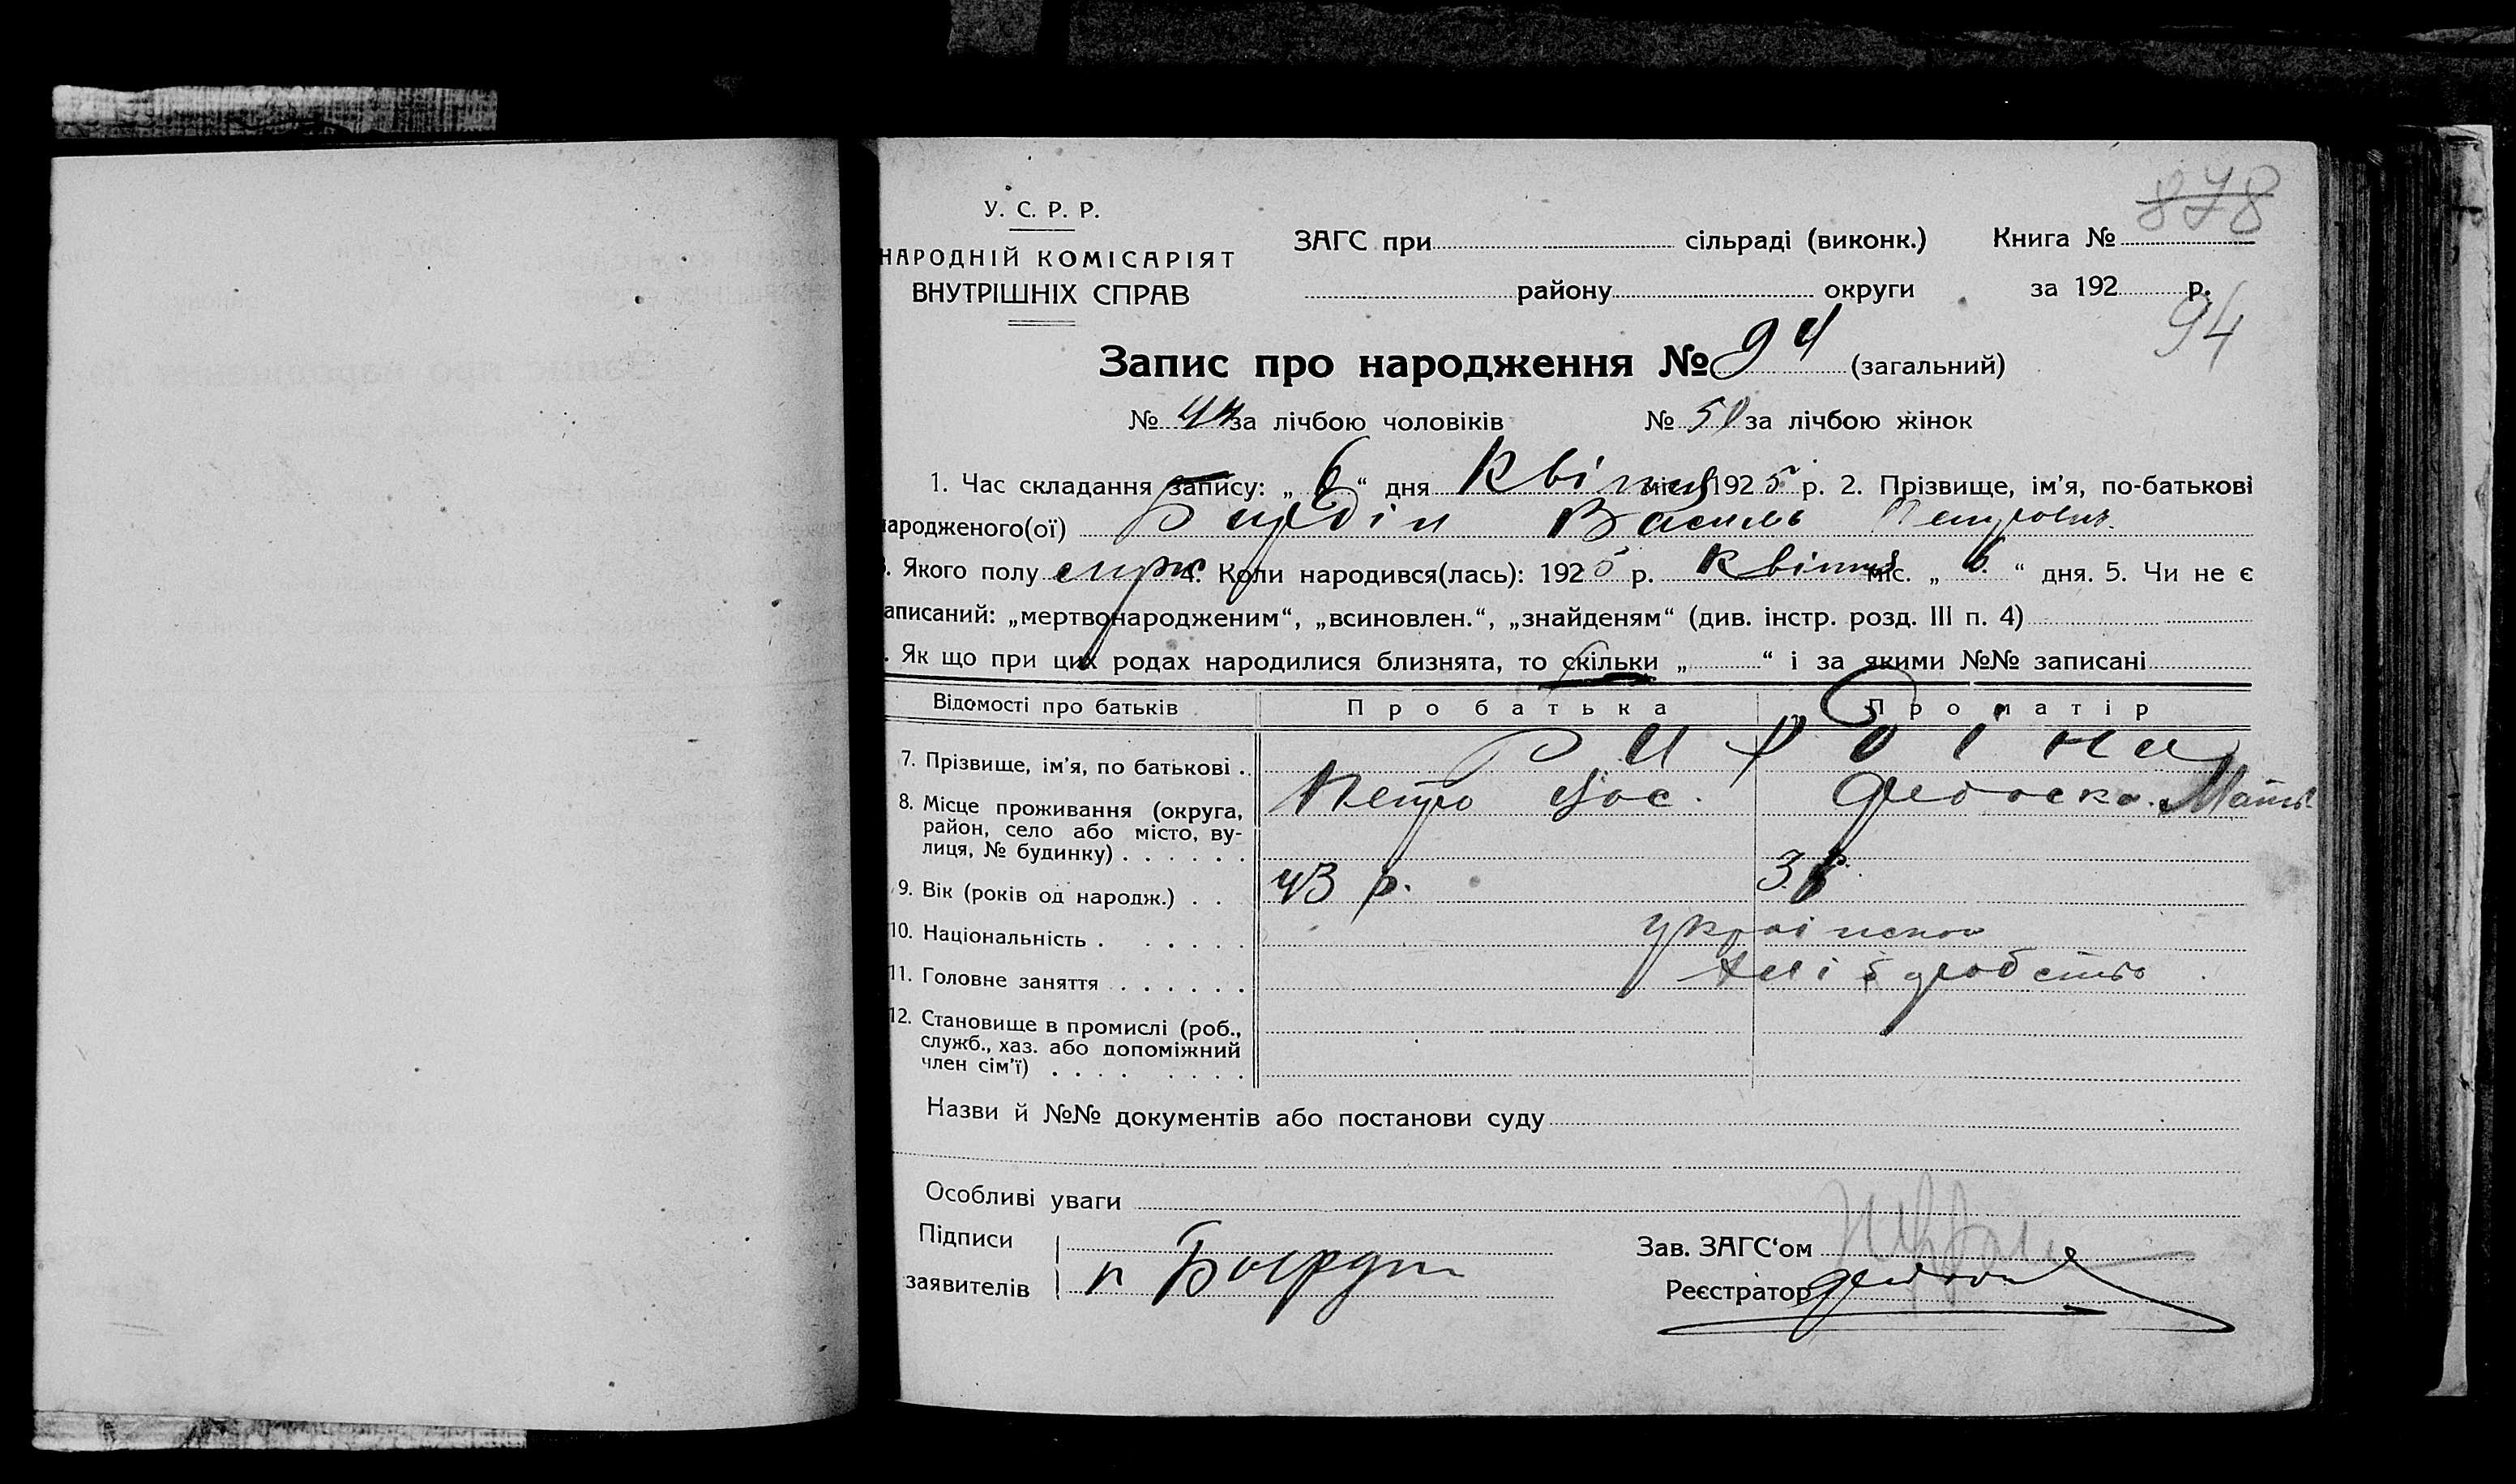 878
У. С. Р. Р.
НАРОДНІЙ КОМІСАРІЯТ
ВНУТРІШНІХ СПРАВ
ЗАГС при сільраді (виконк.) Книга №
району округи за 192 р.
94
Запис про народження № 94 (загальний)
№ 44 за лічбою чоловіків № 50 за лічбою жінок
1. Час складання запису: „ 6 “ дня Квітня міс. 1925 р. 2. Прізвище, ім’я, по-батькові
народженого(ої) Василь Петрович
3. Якого полу муж 4. Коли народився(лась): 1925 р. Квітня міс. „ 6 “ дня. 5. Чи не є
записаний: „мертвонародженим“, „всиновлен.“, „знайденям“ (див. інстр. розд. III п. 4)
. Як що при цих родах народилися близнята, то скільки „ “ і за якими №№ записані
Відомості про батьків Про батька Про матір
7. Прізвище, ім’я, по батькові .
Петро Федоска
8. Місце проживання (округа,
район, село або місто, ву-
лиця, № будинку) . . . . . .
9. Вік (років од народж.) . . 43 р.
10. Національність . . . . . .
11. Головне заняття . . . . . . хліборобство
12. Становище в промислі (роб.,
служб., хаз. або допоміжний
член сім’ї) . . . . . . . .
Назви й №№ документів або постанови суду
Особливі уваги
Підписи
заявителів
Зав. ЗАГС‘ом
Реєстратор